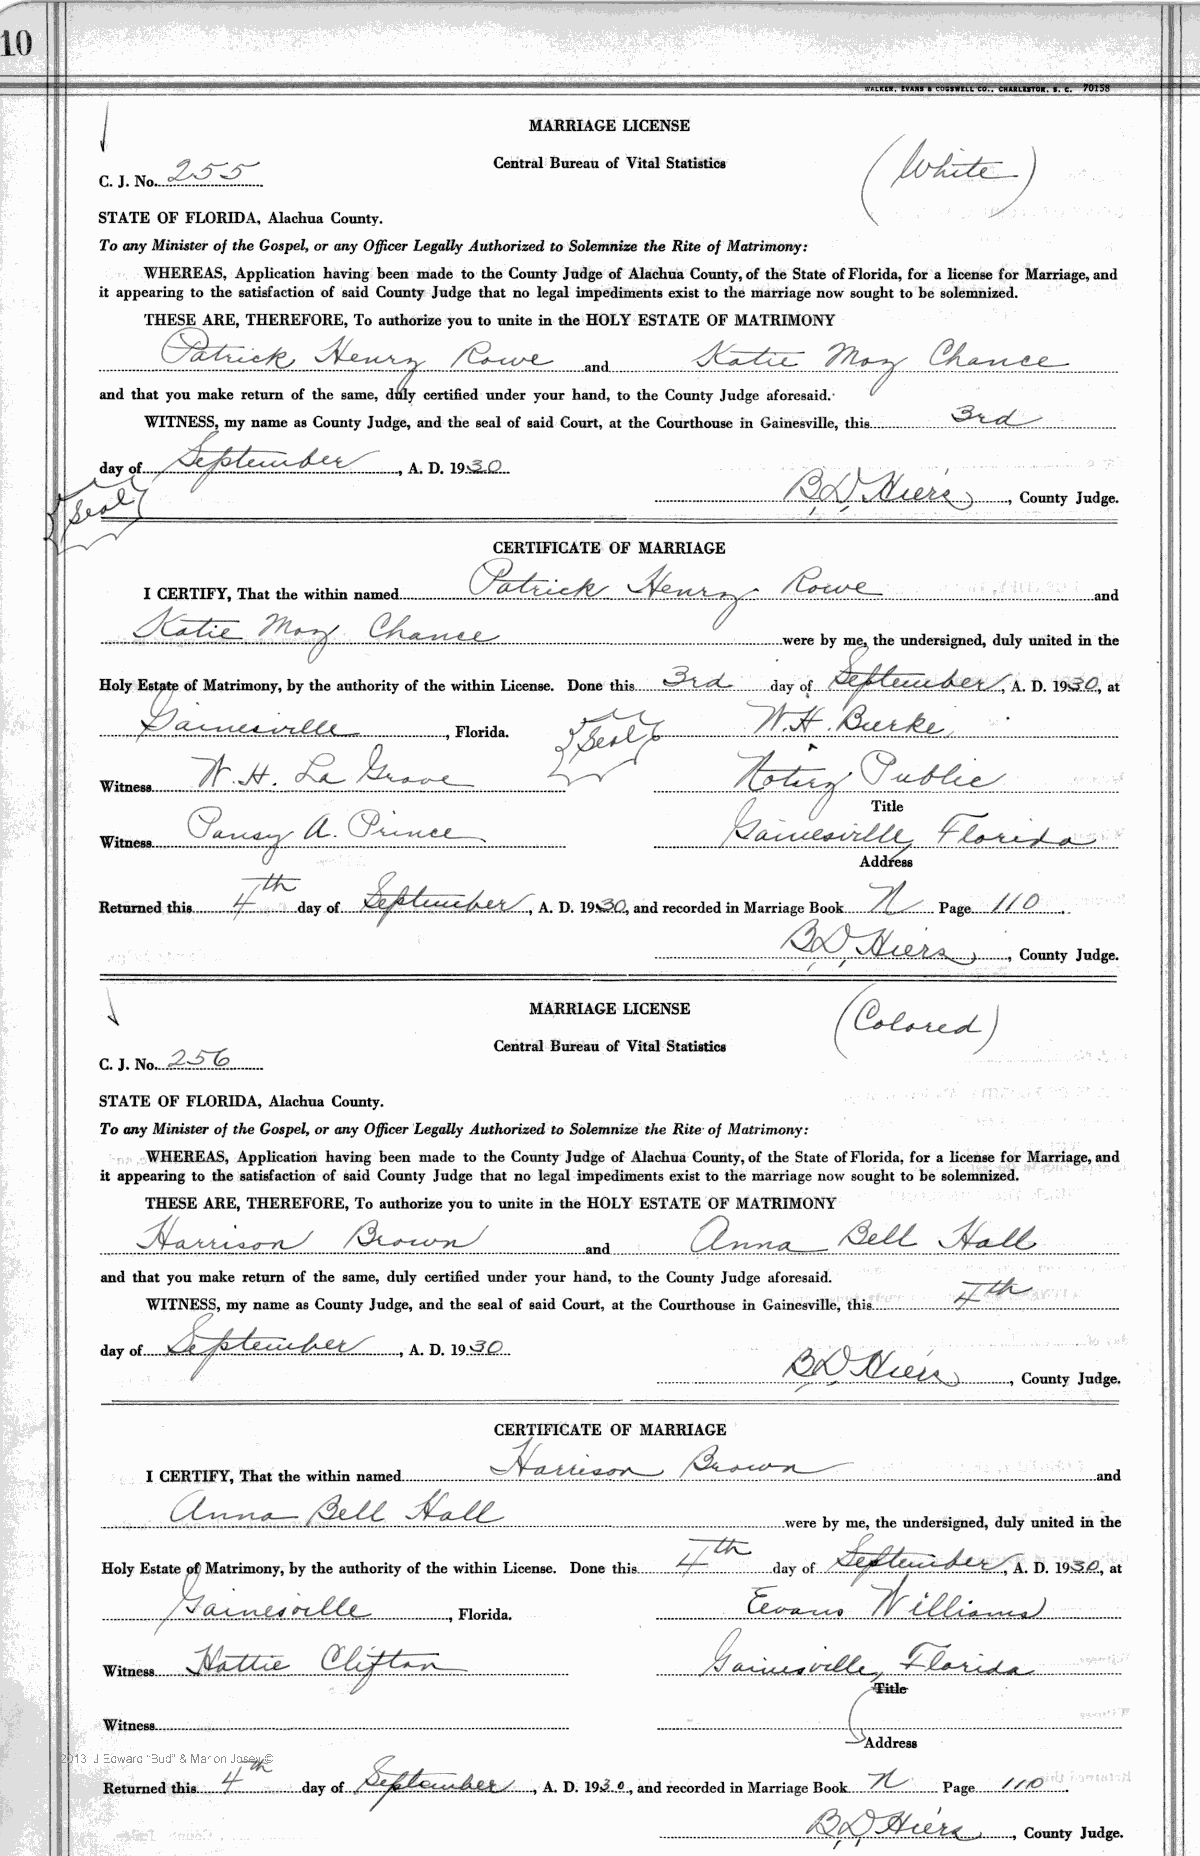 10
WALKER, EVANS & COGSWELL CO., CHARLESTON, S. C. 70158
MARRIAGE LICENSE
Central Bureau of Vital Statistics
(White)
C. J. No. 255
STATE OF FLORIDA, Alachua County.
To any Minister of the Gospel, or any Officer Legally Authorized to Solemnize the Rite of Matrimony:
WHEREAS, Application having been made to the County Judge of Alachua County, of the State of Florida, for a license for Marriage, and
it appearing to the satisfaction of said County Judge that no legal impediments exist to the marriage now sought to be solemnized.
THESE ARE, THEREFORE, To authorize you to unite in the HOLY ESTATE OF MATRIMONY
Patrick Henry Rowe and Katie May Chance
and that you make return of the same, duly certified under your hand, to the County Judge aforesaid.
WITNESS, my name as County Judge, and the seal of said Court, at the Courthouse in Gainesville, this 3rd
day of September, A. D. 1930
Seal
B.D. Hiers, County Judge.
CERTIFICATE OF MARRIAGE
I CERTIFY, That the within named Patrick Henry Rowe and
Katie May Chance were by me, the undersigned, duly united in the
Holy Estate of Matrimony, by the authority of the within License. Done this 3rd day of September, A. D. 1930, at
Gainesville, Florida. Seal W. H. Burke,
Witness W. H. La Grave Notary Public
Title
Witness Pansy A. Prince Gainesville, Florida
Address
Returned this 4th day of September, A. D. 1930, and recorded in Marriage Book N Page 110.
B.D. Hiers, County Judge.
MARRIAGE LICENSE
(Colored)
Central Bureau of Vital Statistics
C. J. No. 256
STATE OF FLORIDA, Alachua County.
To any Minister of the Gospel, or any Officer Legally Authorized to Solemnize the Rite of Matrimony:
WHEREAS, Application having been made to the County Judge of Alachua County, of the State of Florida, for a license for Marriage, and
it appearing to the satisfaction of said County Judge that no legal impediments exist to the marriage now sought to be solemnized.
THESE ARE, THEREFORE, To authorize you to unite in the HOLY ESTATE OF MATRIMONY
Harrison Brown and Anna Bell Hall
and that you make return of the same, duly certified under your hand, to the County Judge aforesaid.
WITNESS, my name as County Judge, and the seal of said Court, at the Courthouse in Gainesville, this 4th
day of September, A. D. 1930
B.D. Hiers, County Judge.
CERTIFICATE OF MARRIAGE
I CERTIFY, That the within named Harrison Brown and
Anna Bell Hall were by me, the undersigned, duly united in the
Holy Estate of Matrimony, by the authority of the within License. Done this 4th day of September, A. D. 1930, at
Gainesville, Florida. Eevans Williams
Witness Hattie Clifton Gainesville, Florida
Title
Witness
Address
2013 J Edward "Bud" & Marion Josey©
Returned this 4th day of September, A. D. 1930, and recorded in Marriage Book N Page 110.
B.D. Hiers, County Judge.